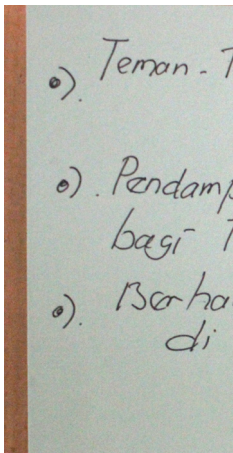 •). Teman - T
•). Pendamp
bagi T
•). Berha
di